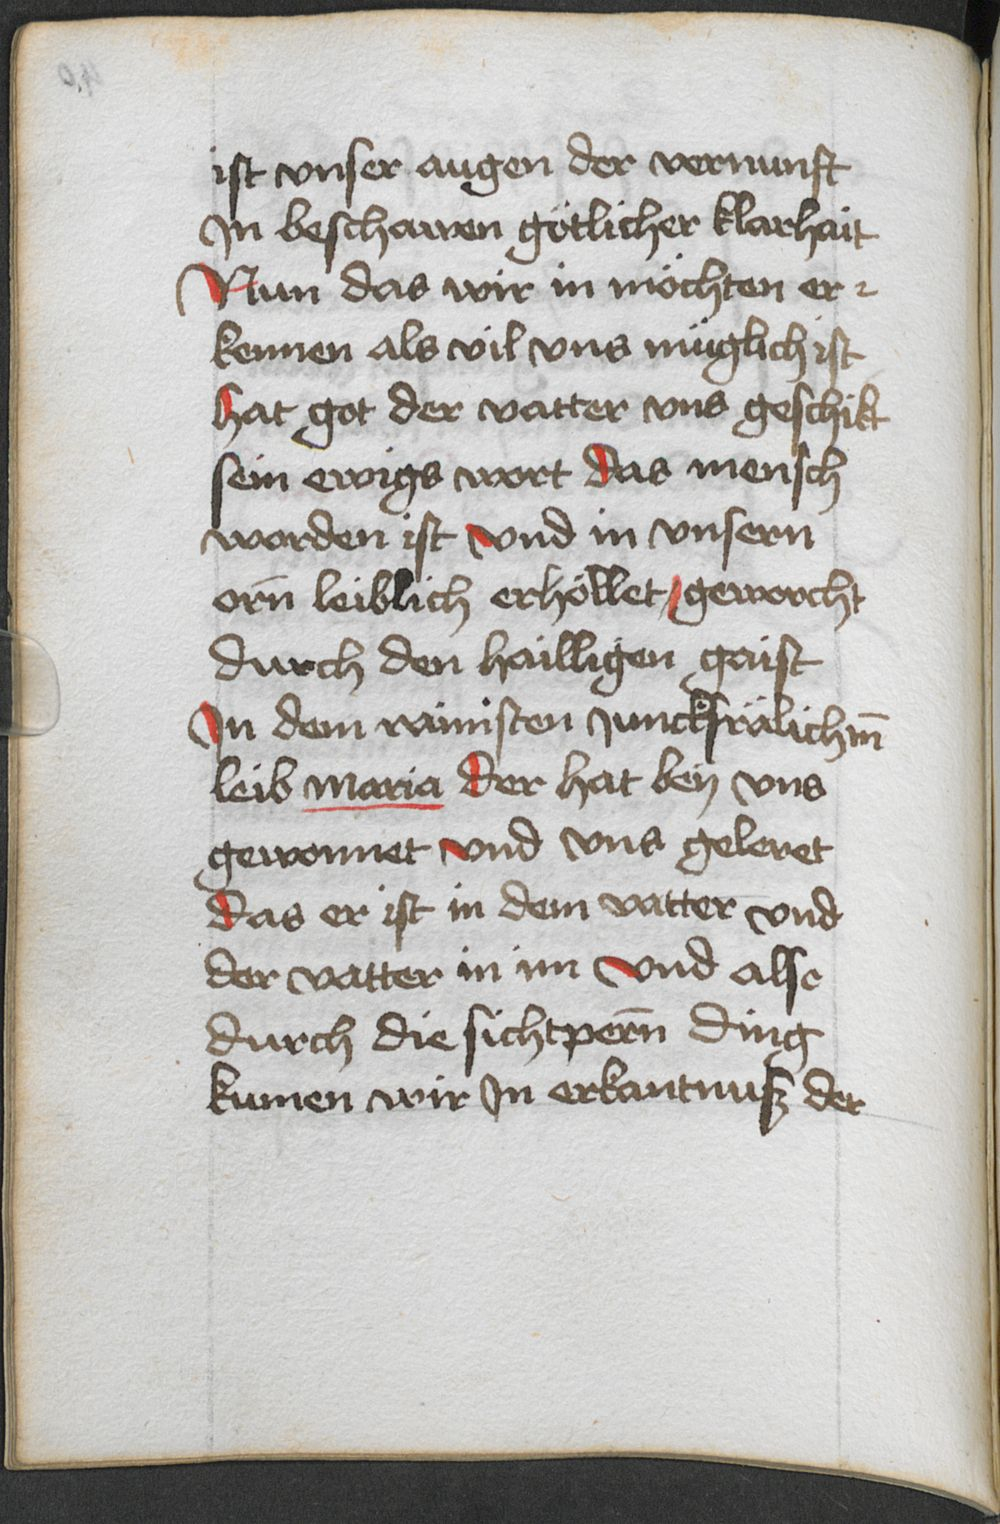 ist vnser augen der vernunft
Jn beschawen götlicher klarhait
Nun das wir in möchten er⸗
kennen als vil vns müglich ist
hat got der vatter vns geschikt
sein ewigs wort das mensch
worden ist vnd in vnsern
orn̄ leiblich erhöllet / geworcht
durch den hailligen gaist
Jn dem rainisten Junckfrälichm̄
leib maria der hat beÿ vns
gewonnet vnd vns geleret
das er ist in dem vatter vnd
der vatter in im vnd also
durch die sichtpern̄ ding
kumen wir Jn erkantnuß der